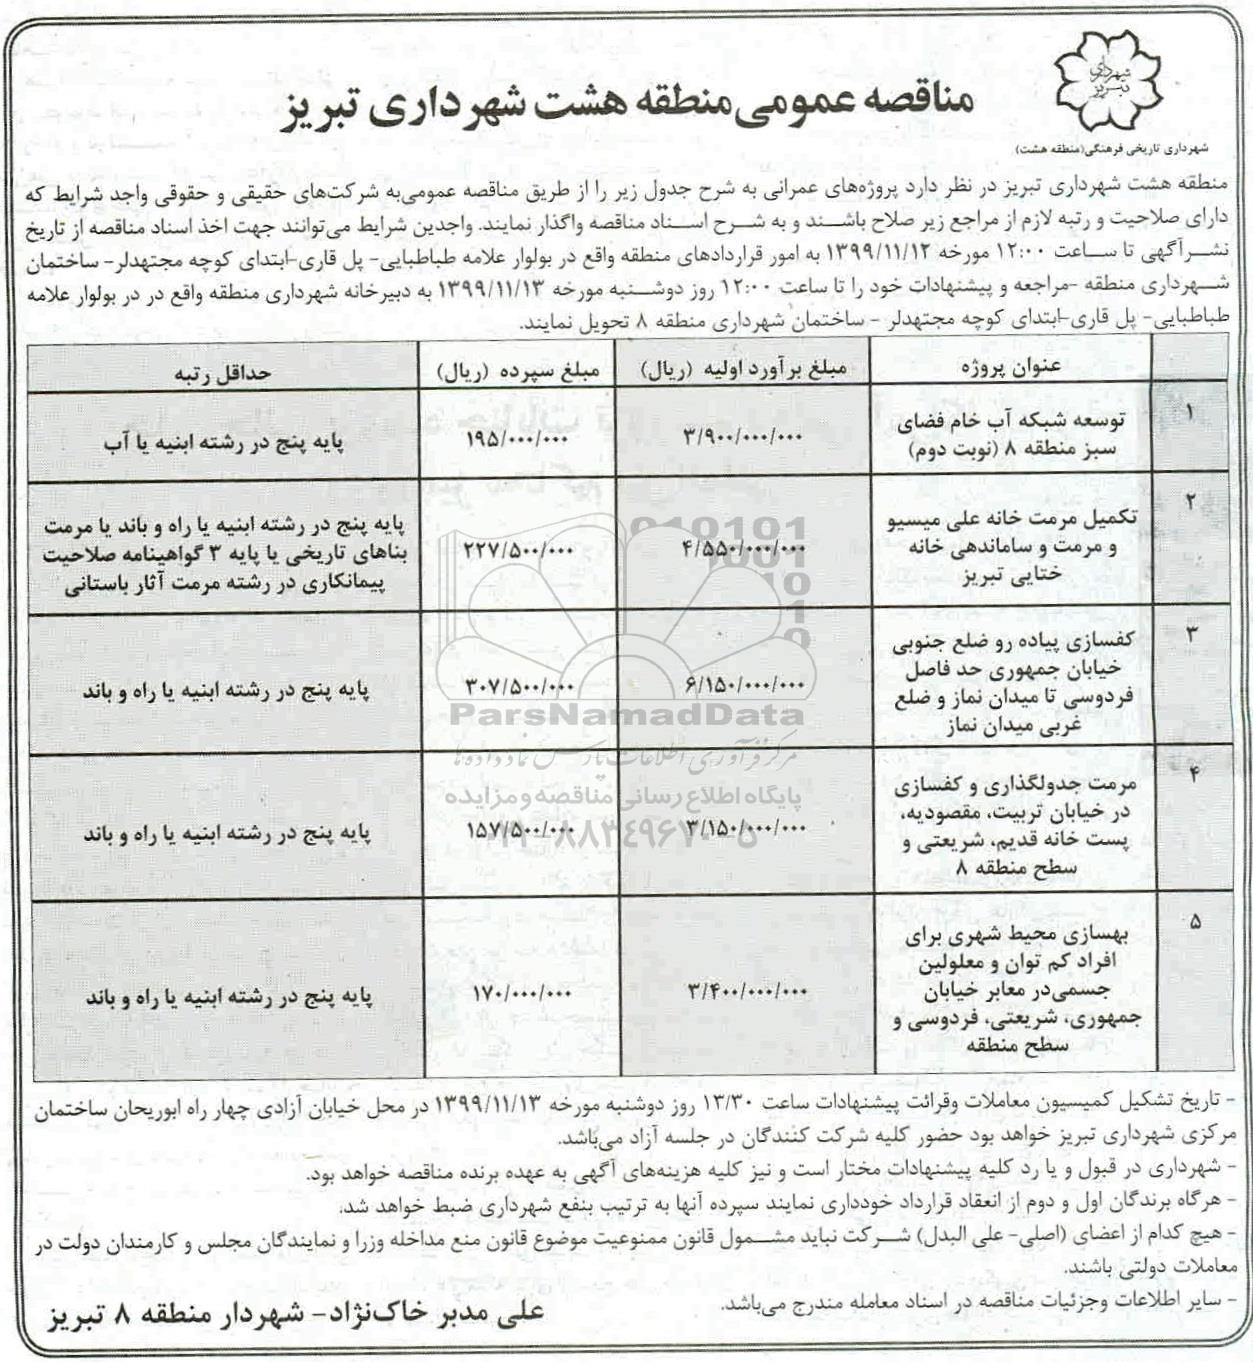 شهرداری
تبریز
شهرداری تاریخی فرهنگی(منطقه هشت)
مناقصه عمومی منطقه هشت شهرداری تبریز
منطقه هشت شهرداری تبریز در نظر دارد پروژه‌های عمرانی به شرح جدول زیر را از طریق مناقصه عمومی‌به شرکت‌های حقیقی و حقوقی واجد شرایط که
دارای صلاحیت و رتبه لازم از مراجع زیر صلاح باشند و به شرح اسناد مناقصه واگذار نمایند. واجدین شرایط می‌توانند جهت اخذ اسناد مناقصه از تاریخ
نشرآگهی تا ساعت ۱۲:۰۰ مورخه ۱۳۹۹/۱۱/۱۲ به امور قراردادهای منطقه واقع در بولوار علامه طباطبایی- پل قاری-ابتدای کوچه مجتهدلر- ساختمان
شهرداری منطقه -مراجعه و پیشنهادات خود را تا ساعت ۱۲:۰۰ روز دوشنبه مورخه ۱۳۹۹/۱۱/۱۳ به دبیرخانه شهرداری منطقه واقع در در بولوار علامه
طباطبایی- پل قاری-ابتدای کوچه مجتهدلر - ساختمان شهرداری منطقه ۸ تحویل نمایند.
عنوان پروژه مبلغ برآورد اولیه (ریال) مبلغ سپرده (ریال) حداقل رتبه
۱ توسعه شبکه آب خام فضای
سبز منطقه ۸ (نوبت دوم) ۳/۹۰۰/۰۰۰/۰۰۰ ۱۹۵/۰۰۰/۰۰۰ پایه پنج در رشته ابنیه یا آب
۲ تکمیل مرمت خانه علی میسیو
و مرمت و ساماندهی خانه
ختایی تبریز ۴/۵۵۰/۰۰۰/۰۰۰ ۲۲۷/۵۰۰/۰۰۰ پایه پنج در رشته ابنیه یا راه و باند یا مرمت
بناهای تاریخی یا پایه ۳ گواهینامه صلاحیت
پیمانکاری در رشته مرمت آثار باستانی
۳ کفسازی پیاده رو ضلع جنوبی
خیابان جمهوری حد فاصل
فردوسی تا میدان نماز و ضلع
غربی میدان نماز ۶/۱۵۰/۰۰۰/۰۰۰ ۳۰۷/۵۰۰/۰۰۰ پایه پنج در رشته ابنیه یا راه و باند
ParsNamadData
مرکز فرآوری اطلاعات پارس نماد داده‌ها
پایگاه اطلاع رسانی مناقصه و مزایده
۴ مرمت جدولگذاری و کفسازی
در خیابان تربیت، مقصودیه،
پست خانه قدیم، شریعتی و
سطح منطقه ۸ ۳/۱۵۰/۰۰۰/۰۰۰ ۱۵۷/۵۰۰/۰۰۰ پایه پنج در رشته ابنیه یا راه و باند
۵ بهسازی محیط شهری برای
افراد کم توان و معلولین
جسمی‌در معابر خیابان
جمهوری، شریعتی، فردوسی و
سطح منطقه ۳/۴۰۰/۰۰۰/۰۰۰ ۱۷۰/۰۰۰/۰۰۰ پایه پنج در رشته ابنیه یا راه و باند
- تاریخ تشکیل کمیسیون معاملات وقرائت پیشنهادات ساعت ۱۳/۳۰ روز دوشنبه مورخه ۱۳۹۹/۱۱/۱۳ در محل خیابان آزادی چهار راه ابوریحان ساختمان
مرکزی شهرداری تبریز خواهد بود حضور کلیه شرکت کنندگان در جلسه آزاد می‌باشد.
- شهرداری در قبول و یا رد کلیه پیشنهادات مختار است و نیز کلیه هزینه‌های آگهی به عهده برنده مناقصه خواهد بود.
- هرگاه برندگان اول و دوم از انعقاد قرارداد خودداری نمایند سپرده آنها به ترتیب بنفع شهرداری ضبط خواهد شد.
- هیچ کدام از اعضای (اصلی- علی البدل) شرکت نباید مشمول قانون ممنوعیت موضوع قانون منع مداخله وزرا و نمایندگان مجلس و کارمندان دولت در
معاملات دولتی باشند.
- سایر اطلاعات وجزئیات مناقصه در اسناد معامله مندرج می‌باشد.
علی مدبر خاک‌نژاد- شهردار منطقه ۸ تبریز